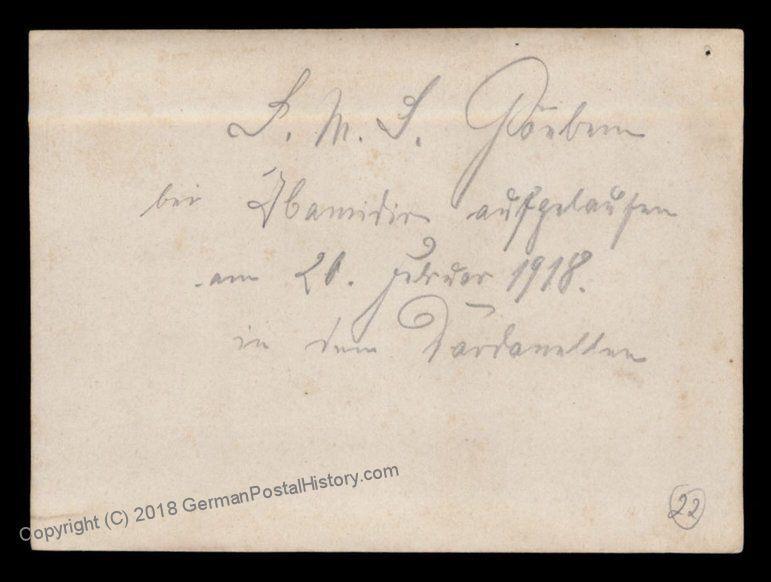 S. M. S. Goeben
bei aufgelaufen
am 20. 1918.
in den Dardanellen
22
Copyright (C) 2018 GermanPostalHistory.com